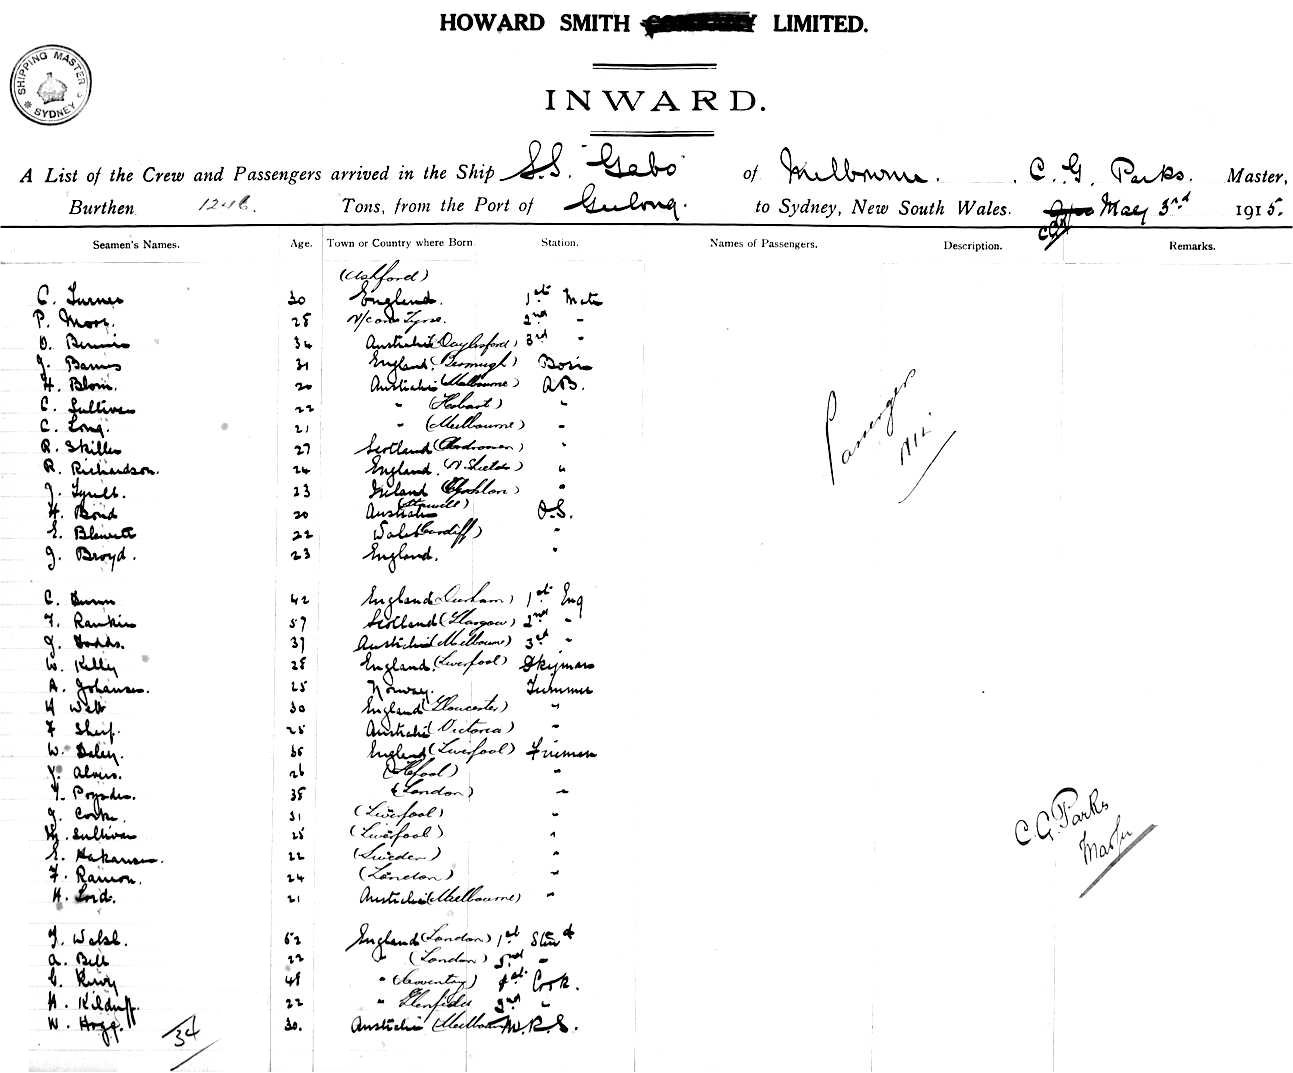 HOWARD SMITH LIMITED.
SHIPPING MASTER
SYDNEY
INWARD.
A List of the Crew and Passengers arrived in the Ship S.S. "Gabo" of Melbourne. C. G. Parks. Master,
Burthen 1246. Tons, from the Port of Geelong. to Sydney, New South Wales. May 3rd 1915.
Seamen's Names. Age. Town or Country where Born Station. Names of Passengers. Description. Remarks.
(Ashford)
C. Turner 30 England. 1st Mate
P. 28 Tyne. 2nd "
34 (Daylesford) 3rd "
J. Barnes 31 England. Bosn
H. Blom. 20 (Melbourne) A.B.
C. Sullivan 22 " (Hobart) "
C. Long. 21 " (Melbourne) "
R. Skilles 27 Scotland "
R. Richardson. 24 England. (N. Shields) "
J. 23 Ireland "
(Stawell)
H. Bond 20 Australia O.S.
E. Blewett 22 Wales (Cardiff) "
J. Broyd. 23 England. "
C. Dunn 42 England (Durham) 1st Eng
F. Rankin 57 Scotland (Glasgow) 2nd "
J. Dodds. 37 (Melbourne) 3rd "
W. Kelly 28 England. (Liverpool)
A. Johansen. 25 Norway.
30 England (Gloucester) "
F 25 (Victoria) "
W. Daley. 35 England (Liverpool) Fireman
26 "
35 (London) "
J. Cooke. 31 (Liverpool) "
Sullivan 25 (Liverpool) "
E. Hakansen. 22 (Sweden) "
F. Ramon. 24 (London) "
H. Lord. 21 (Melbourne) "
Walsh. 52 England (London) 1st Stew'd
A. Bell 22 " (London) 2nd "
48 " (Coventry) 1st Cook.
H. Kilduff. 22 " 2nd "
W. Hogg. 30. M.R.S.
34
Passengers
Nil.
C. G. Parks
Master